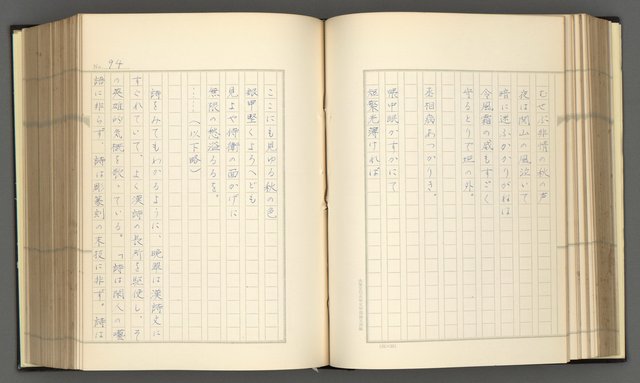 むせぶ非情の秋の声
夜は関山の風泣いて
暗に迷ふかかりがねは
令風霜の威もすごく
守るとりでの垣の外。
丞相病あつかりき。
帳中眠かすかにて
短檠光薄ければ
No. 94
ここにも見ゆる秋の色
銀甲堅くよろへども
見よや侍衛の面かげに
無限の愁溢るるを。
……(以下略)
詩をみてもわかるように、晩翠は漢詩文に
すぐれていて、よく漢詩の長所を駆使し、そ
の英雄的気慨を歌っている。「詩は閑人の囈
語に非らず、詩は彫篆刻の末技に非ず。詩は